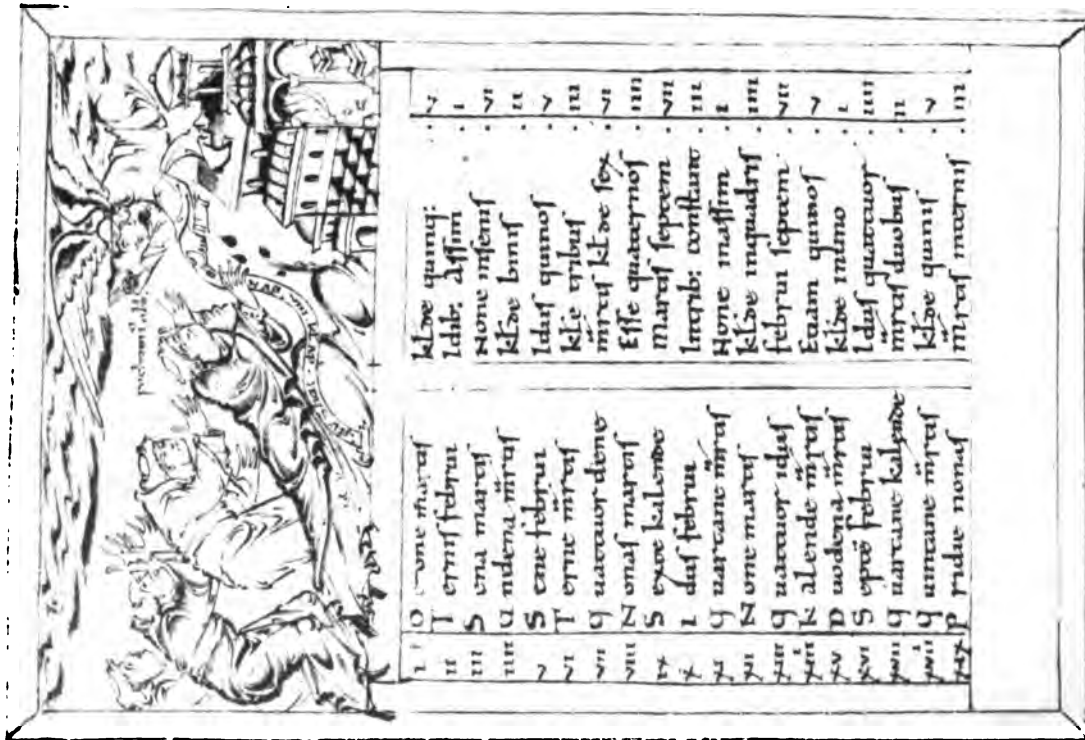 pascua illa
i O none martias klde quinq: . v
ii Ternis februi Idib: assim . i
iii Sena martias None insenis . vi
iiii Undena m̄rtias klde binis . ii
v Sene februi Idus quinos . v
vi Terne m̄rtias kle tribus . iii
vii Quatuor deno m̄rtias klde sex . vi
viii Nonas martias Esse quaternos . iiii
ix Sexte kalende Martis septem . vii
x Idus februi Intrib: constant . iii
xi Quartane m̄rtias None massim . i
xii None martias klde inquadris . iiii
xiii Quatuor idus februi septem . vii
xiiii Kalende m̄rtias Etiam quinos . v
xv Duodena m̄rtias klde inuno . i
xvi Septē februi Idus quatuor . iiii
xvii Quartane kalende m̄rtias duobus . ii
xviii Quintane m̄rtias klde quinis . v
xix Pridie nonas m̄rtias internis . iii